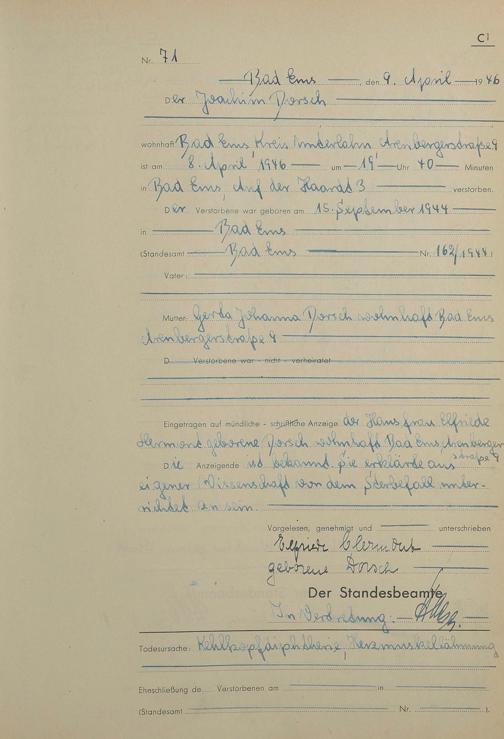 C1
Nr. 71
Bad Ems, den 9. April 1946
Der Joachim Dorsch
wohnhaft Bad Ems Kreis Unterlahn Arenbergerstraße 9
ist am 8. April 1946 um 19 Uhr 40 Minuten
in Bad Ems, Auf der Haardt 3 verstorben.
Der Verstorbene war geboren am 15. September 1944
in Bad Ems
(Standesamt Bad Ems Nr. 162/1944)
Vater:
Mutter: Gerda Johanna Dorsch wohnhaft Bad Ems
Arenbergerstraße 9
D Verstorbene war - nicht - verheiratet
Eingetragen auf mündliche - schriftliche Anzeige der Hausfrau Elfriede
geborene Dorsch wohnhaft Bad Ems, Arenberger
straße 9
Die Anzeigende ist bekannt. Sie erklärte aus
eigener Wissenschaft von dem Sterbefall unter-
richtet zu sein.
Vorgelesen, genehmigt und unterschrieben
Elfriede
geborene Dorsch
Der Standesbeamte
In Vertretung:
Todesursache: Kehlkopfdiphtherie, Herzmuskellähmung
Eheschließung de Verstorbenen am in
(Standesamt Nr. ).